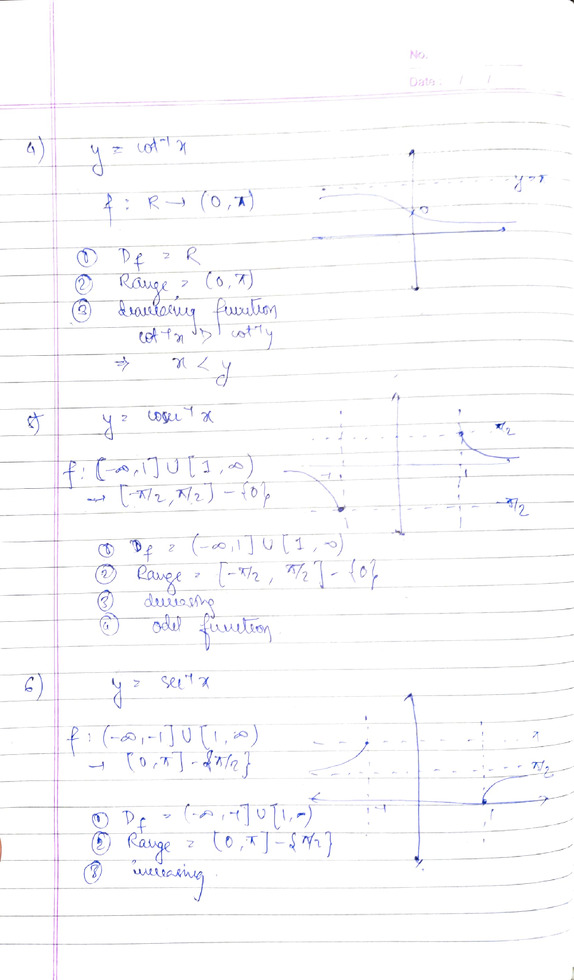 No.
Date : / /
4) y = cot⁻¹x
y = π
f : R → (0, π)
① Df = R
② Range = (0, π)
③ decreasing function
cot⁻¹x > cot⁻¹y
⇒ x < y
5) y = cosec⁻¹x
π/2
f: (-∞, 1] ∪ [1, ∞)
-1 1
→ [-π/2, π/2] - {0}
-π/2
① Df = (-∞, 1] ∪ [1, ∞)
② Range = [-π/2, π/2] - {0}
③ decreasing
④ odd function
6) y = sec⁻¹x
f : (-∞, -1] ∪ [1, ∞)
π
→ [0, π] - {π/2}
π/2
① Df = (-∞, -1] ∪ [1, ∞)
-1 1
② Range = [0, π] - {π/2}
③ increasing